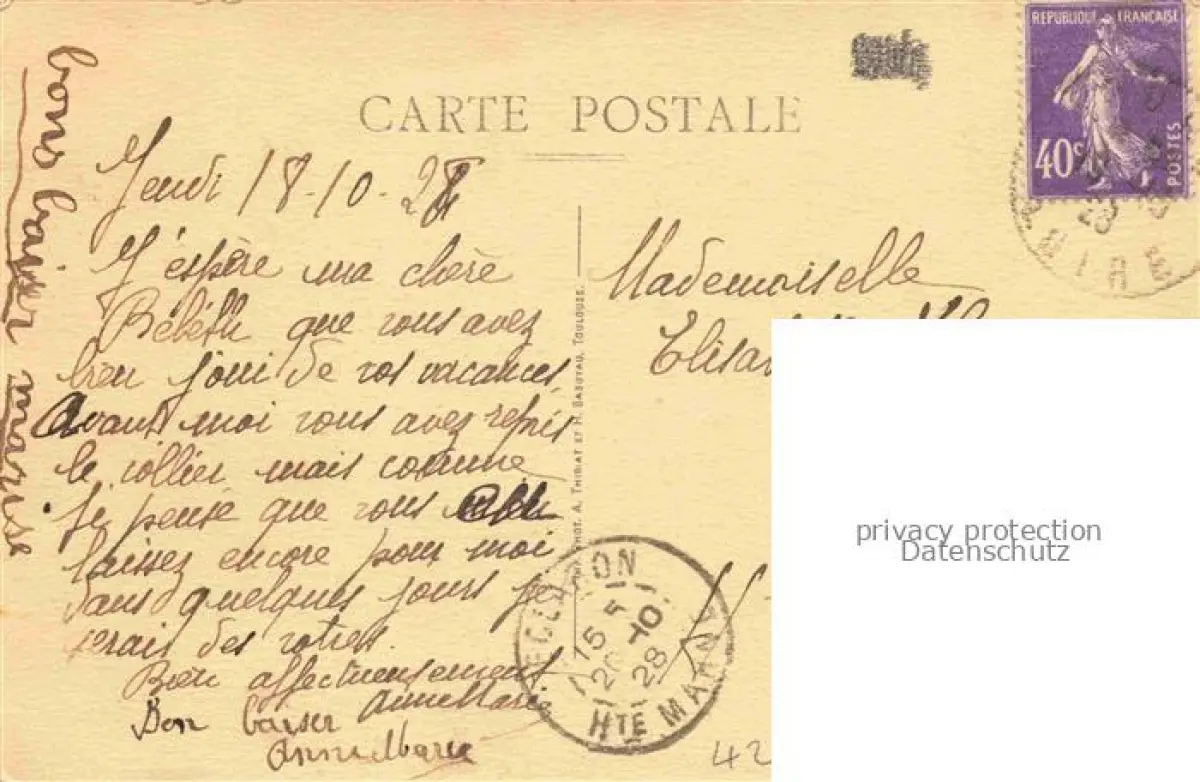 REPUBLIQUE FRANÇAISE
40c
POSTES
CARTE POSTALE
Jeudi 18-10-28
J'espère ma chère
Bébéth que vous avez
bien joui de vos vacances,
Avant moi vous avez repris
le collier mais comme
je pense que vous en
laissez encore pour moi
dans quelques jours je
serais des votres.
Bien affectueusement
AnneMarie
Bon baiser
AnneMarie
bons baiser
Mademoiselle
PHOT. A. THIRIAT ET H. BASUYAU, TOULOUSE.
ECLARON
15 5
20-10
28
HTE MARNE
42
privacy protection
Datenschutz